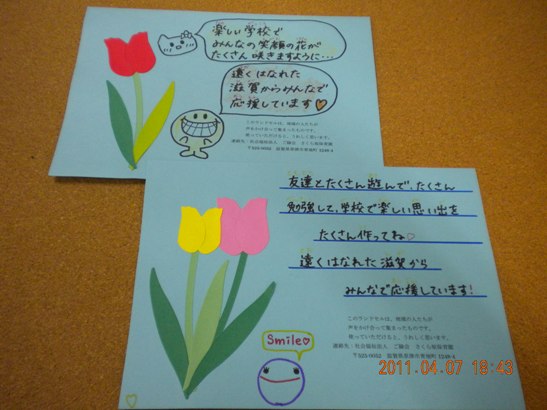 楽しい学校で
みんなの笑顔の花が
たくさん咲きますように…
遠くはなれた
滋賀からみんなで
応援しています♡
このランドセルは、地域の人たちが
声をかけ合って集まったものです。
使っていただけると、うれしく思います。
連絡先:社会福祉法人 ご縁会 さくら坂保育園
友達とたくさん遊んで、たくさん
勉強して、学校で楽しい思い出を
たくさん作ってね♡
遠くはなれた滋賀から
みんなで応援しています!
このランドセルは、地域の人たちが
声をかけ合って集まったものです。
使っていただけると、うれしく思います。
連絡先:社会福祉法人 ご縁会 さくら坂保育園
Smile♡
2011.04.07 18:43